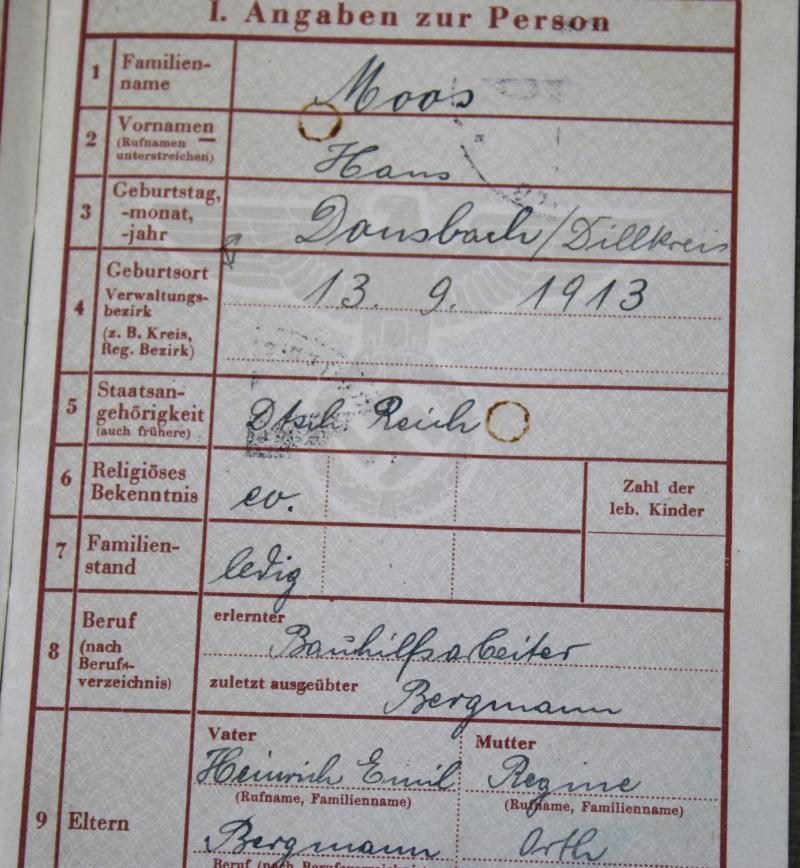 I. Angaben zur Person
1 Familien-
name
Moos
2 Vornamen
(Rufnamen
unterstreichen)
Hans
3 Geburtstag,
-monat,
-jahr
Donsbach/Dillkreis
4 Geburtsort
Verwaltungs-
bezirk
(z. B. Kreis,
Reg. Bezirk)
13. 9. 1913
5 Staatsan-
gehörigkeit
(auch frühere)
Dtsch. Reich
6 Religiöses
Bekenntnis
ev.
Zahl der
leb. Kinder
7 Familien-
stand
ledig
8 Beruf
(nach
Berufs-
verzeichnis)
erlernter
Bauhilfsarbeiter
zuletzt ausgeübter
Bergmann
9 Eltern
Vater
Heinrich Emil
(Rufname, Familienname)
Bergmann
Mutter
Regine
(Rufname, Familienname)
Orth